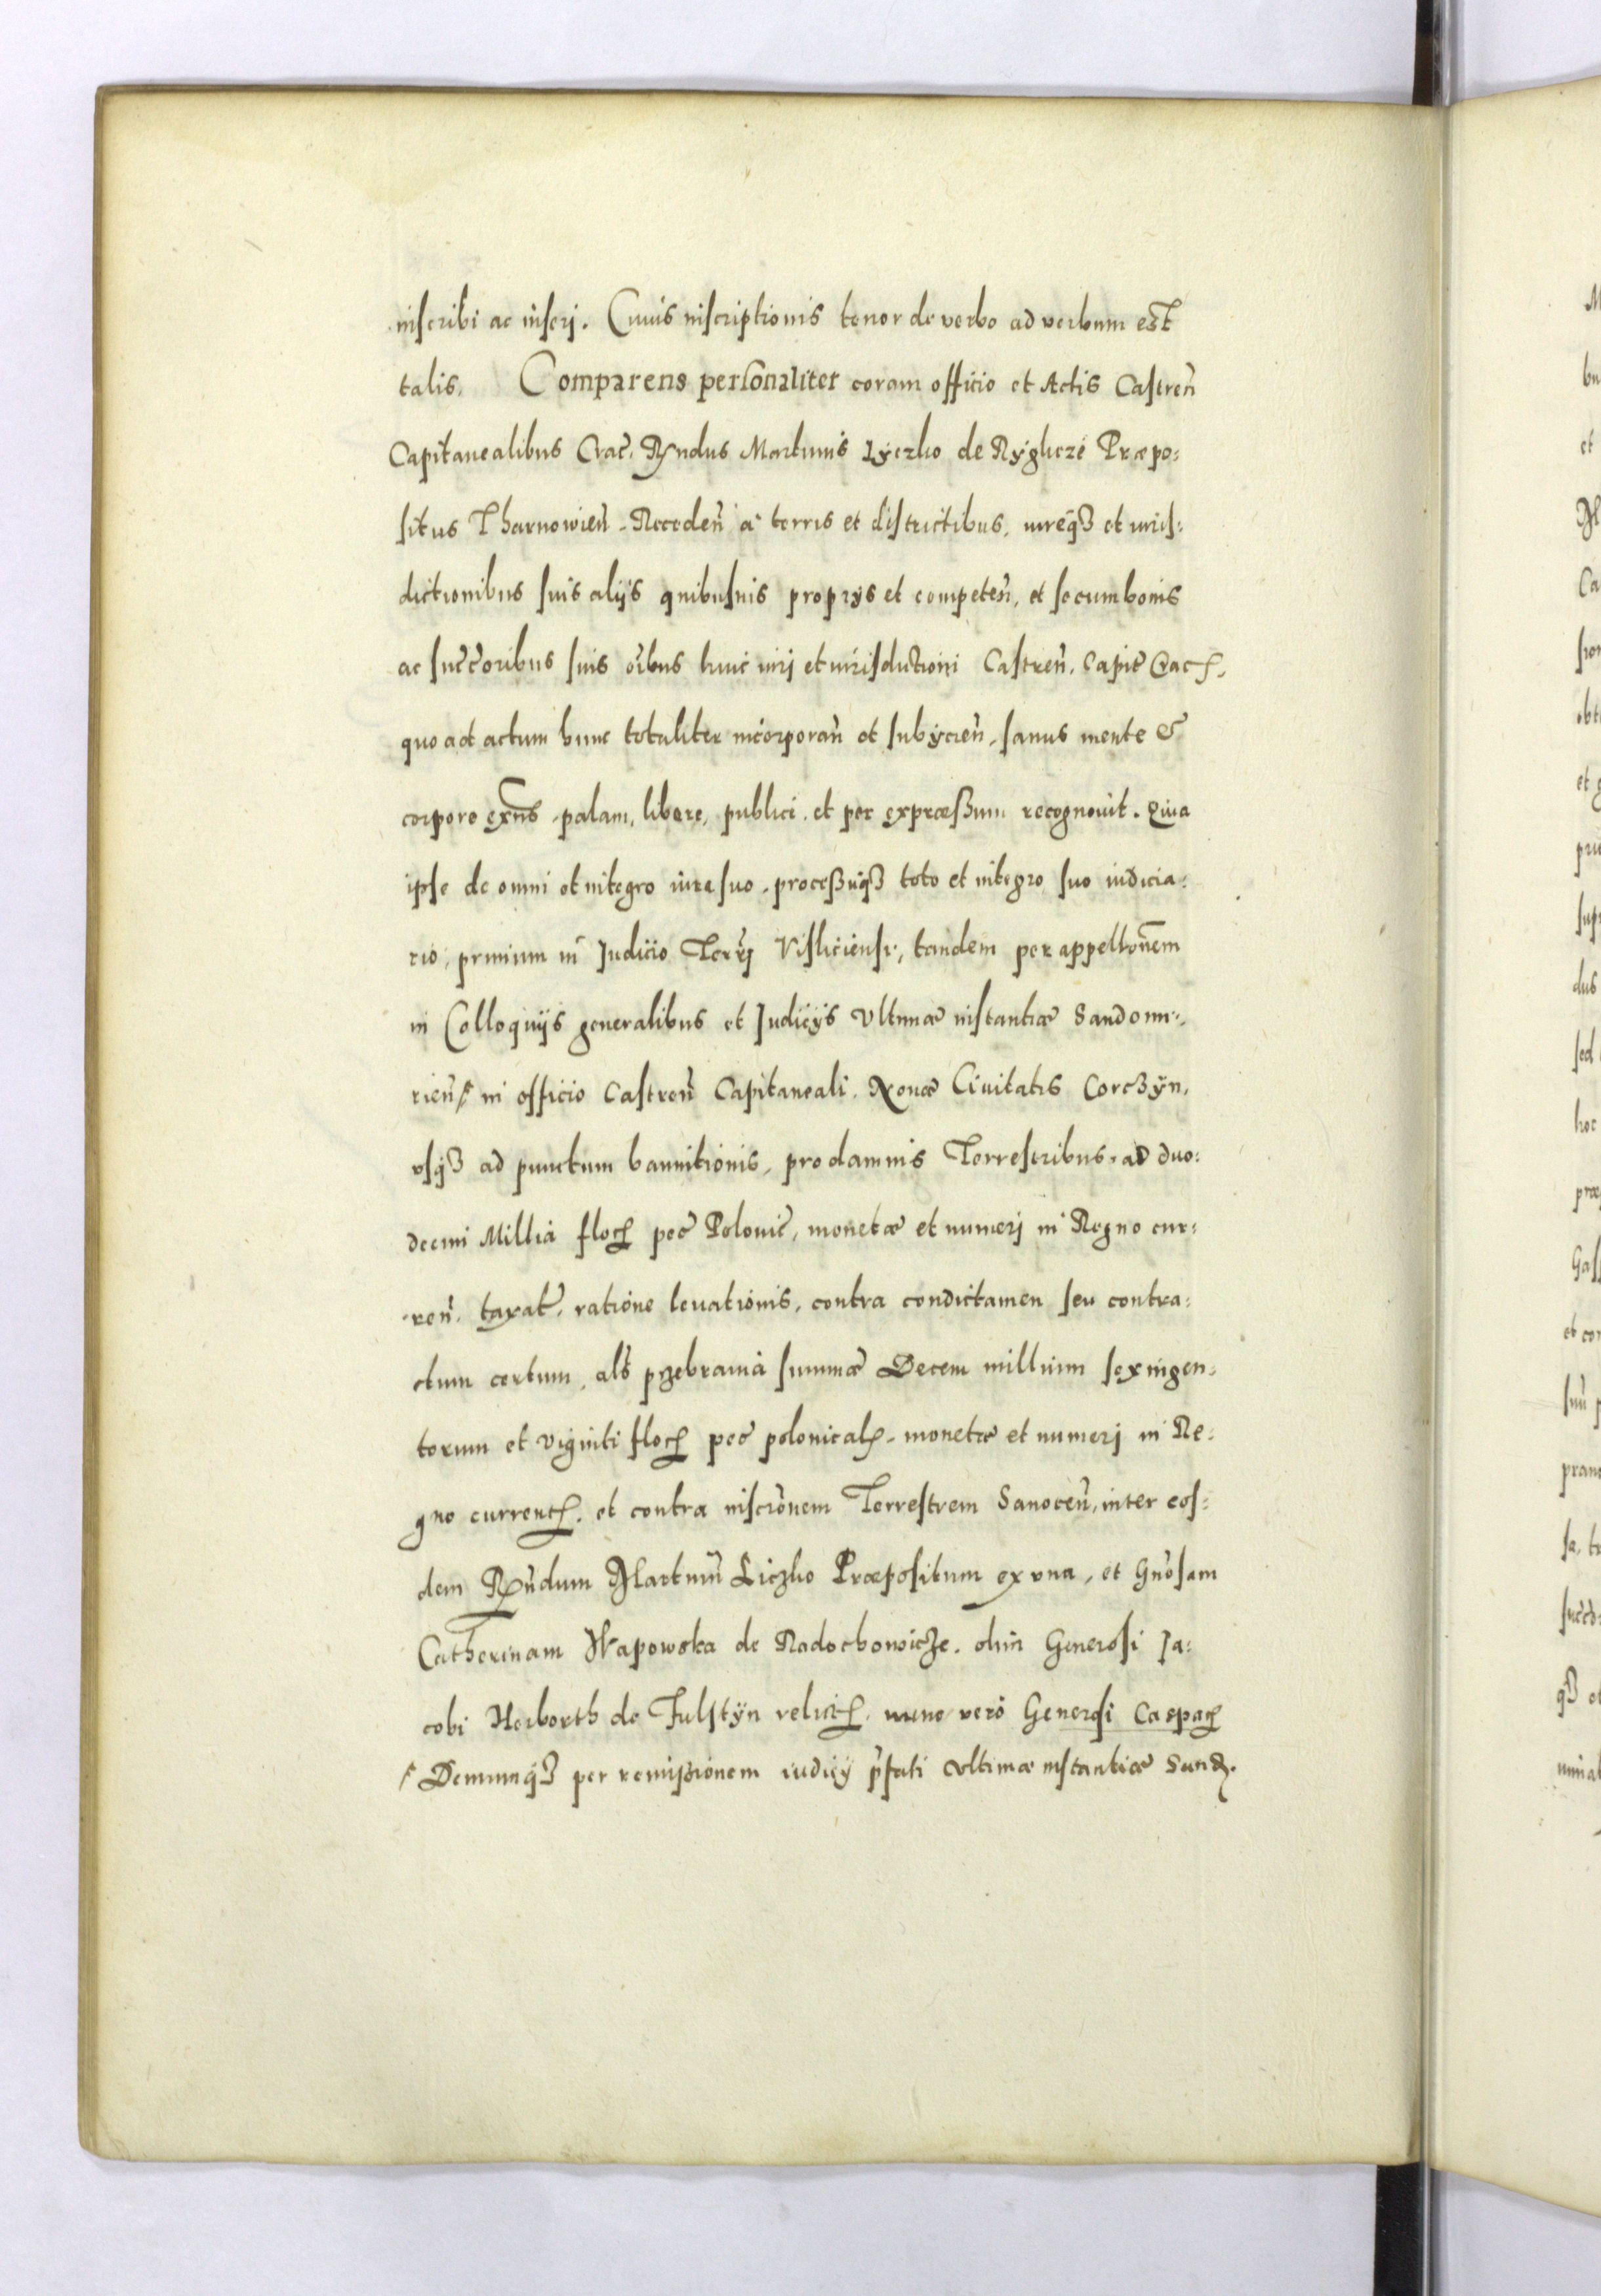 inscribi ac inseri. Cuius inscriptionis tenor de verbo ad verbum est
talis. Comparens personaliter coram officio et Actis Castren̄
Capitanealibus Crac̄. Rn̄dus Martinus Lyczko de Ryglicze Præpo:
situs Tharnowien̄. Receden̄ à terris et districtibus, iureq₃ et iuris:
dictionibus suis alijs quibusuis proprijs et competen̄, et se cum bonis
ac succ̄oribus suis oībus huic iuri et iurisdictioni Castren̄. Capit̄ Crac.
quo ad actum hunc totaliter incorporan̄ et subijcien̄, sanus mente &
corpore exn̄s, palam, libere, publice, et per expræssum recognouit. Quia
ipse de omni et integro iure suo, processuq₃ toto et integro suo iudicia:
rio, primum in Judicio Terrī Visliciensi, tandem per appell̄onem
in Colloquijs generalibus et Judicijs Vltimæ instantiæ Sandomi:
rien̄ in officio Castren̄ Capitaneali. Nouæ Ciuitatis Corczÿn,
vsq₃ ad punctum bannitionis, pro damnis Terrestribus, ad duo:
decim Millia floꝝ pec̄ Polonic̄, monetæ et numeri in Regno cur:
ren̄. taxat̄. ratione leuationis, contra condictamen seu contra:
ctum certum, als̄ przebrania summæ Decem millium sexingen:
torum et viginti floꝝ pec̄ polonicalꝭ, monetæ et numeri in Re:
gno currentꝭ. et contra inscr̄onem Terrestrem Sanocen̄, inter eos:
dem Rn̄dum Martinū Liczko Præpositum ex vna, et Gn̄osam
Catherinam Wapowska de Radochonicze. olim Generosi Ja:
cobi Herborth de Fulstÿn relictꝭ. nunc vero Generosi Caspaꝝ
Demumq₃ per remissionem iudicij p̄fati vltimæ instantiæ Sand.